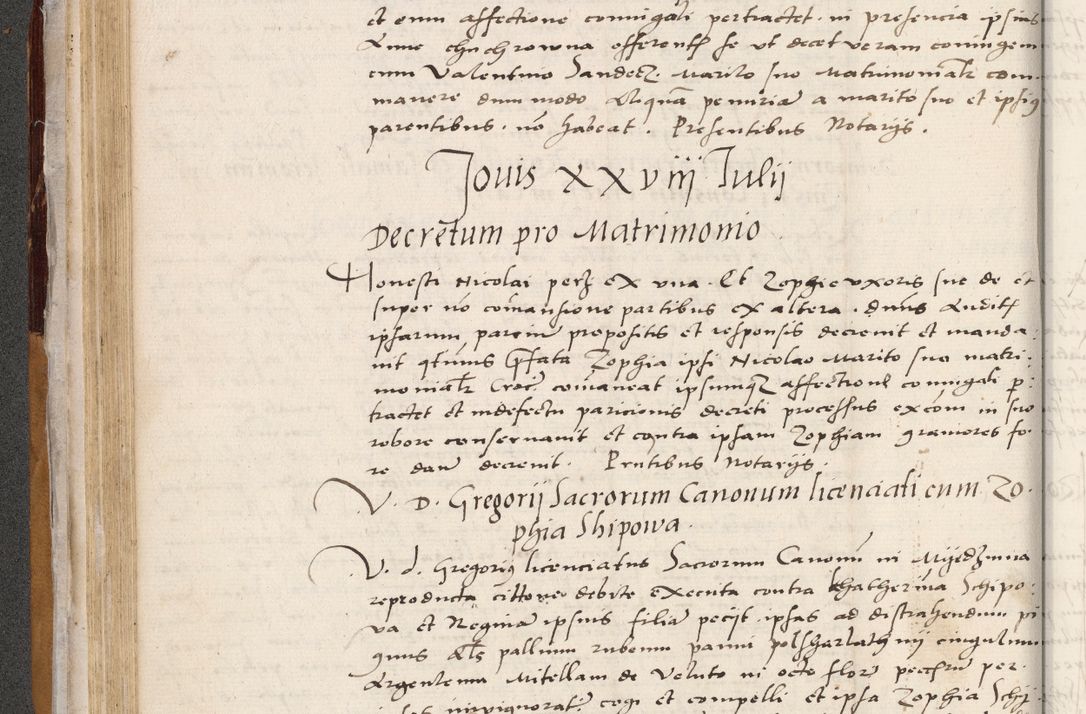 et eum affectione coniugali pertractet. in presencia ipsius
Anne chuchrowna offerentis se ut decet veram coniugem
cum Valentino Sandecz. Marito suo Matrimonialr com
manere dum modo Aliquā penuriā a marito suo et ipsius
parentibus. nō habeat. Presentibus Notarijs.
Jouis XXviij Julij
Decretum pro Matrimonio
Honesti Nicolai ex una. Et Zophie uxoris sue de et
super nō cōmansione partibus ex altera. dnūs Auditis
ipsarum parciū propositis et responsis decreuit et manda
uit qtinus Prefata Zophia ipsi Nicolao Marito suo matri.
monialr comaneat ipsumq affectione coniugali p:
tractet Et indefectu paricionis decreti processus excōm in suo
robore conseruauit et contra ipsam Zophiam grauiores fo
re dari decreuit. Prntibus Notarijs.
V. D. Gregorij Sacrorum Canonum licenciati cum Zo.
phia Shipowa.
V. d. Gregorius licenciatus Sacrorum Canonū in
reproducta cittone debite executa contra khatherina Schipo.
va et Regina ipsius filia pecijt ipsas ad distrahendum pi
gnus Als pallium rubeum panni cingulum
Argenteum Mitellam de Veluto in octo flor per.
cogi et compelli et ipsa Zophia Schi